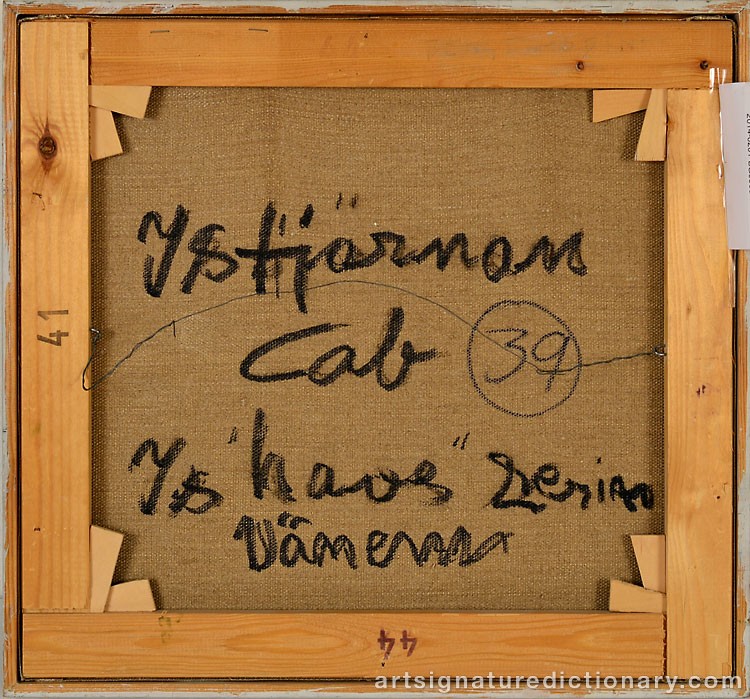 Isstjärnan
Cab
39
Is "kaos" Serien
Vänern
41
44
artsignaturedictionary.com